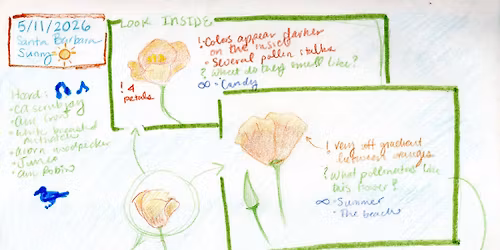 5/11/2026
Santa Barbara
Sunny
LOOK INSIDE
! Colors appear darker
on the inside
• Several pollen stalks
? What do they smell like?
∞ • Candy
! 4
petals
Heard:
• CA scrub jay
• White breasted
nuthatch
• Acorn woodpecker
• Junco
• Am Robin
! Very soft gradient
between oranges
? What pollinators like
this flower?
∞ • Summer
• The beach